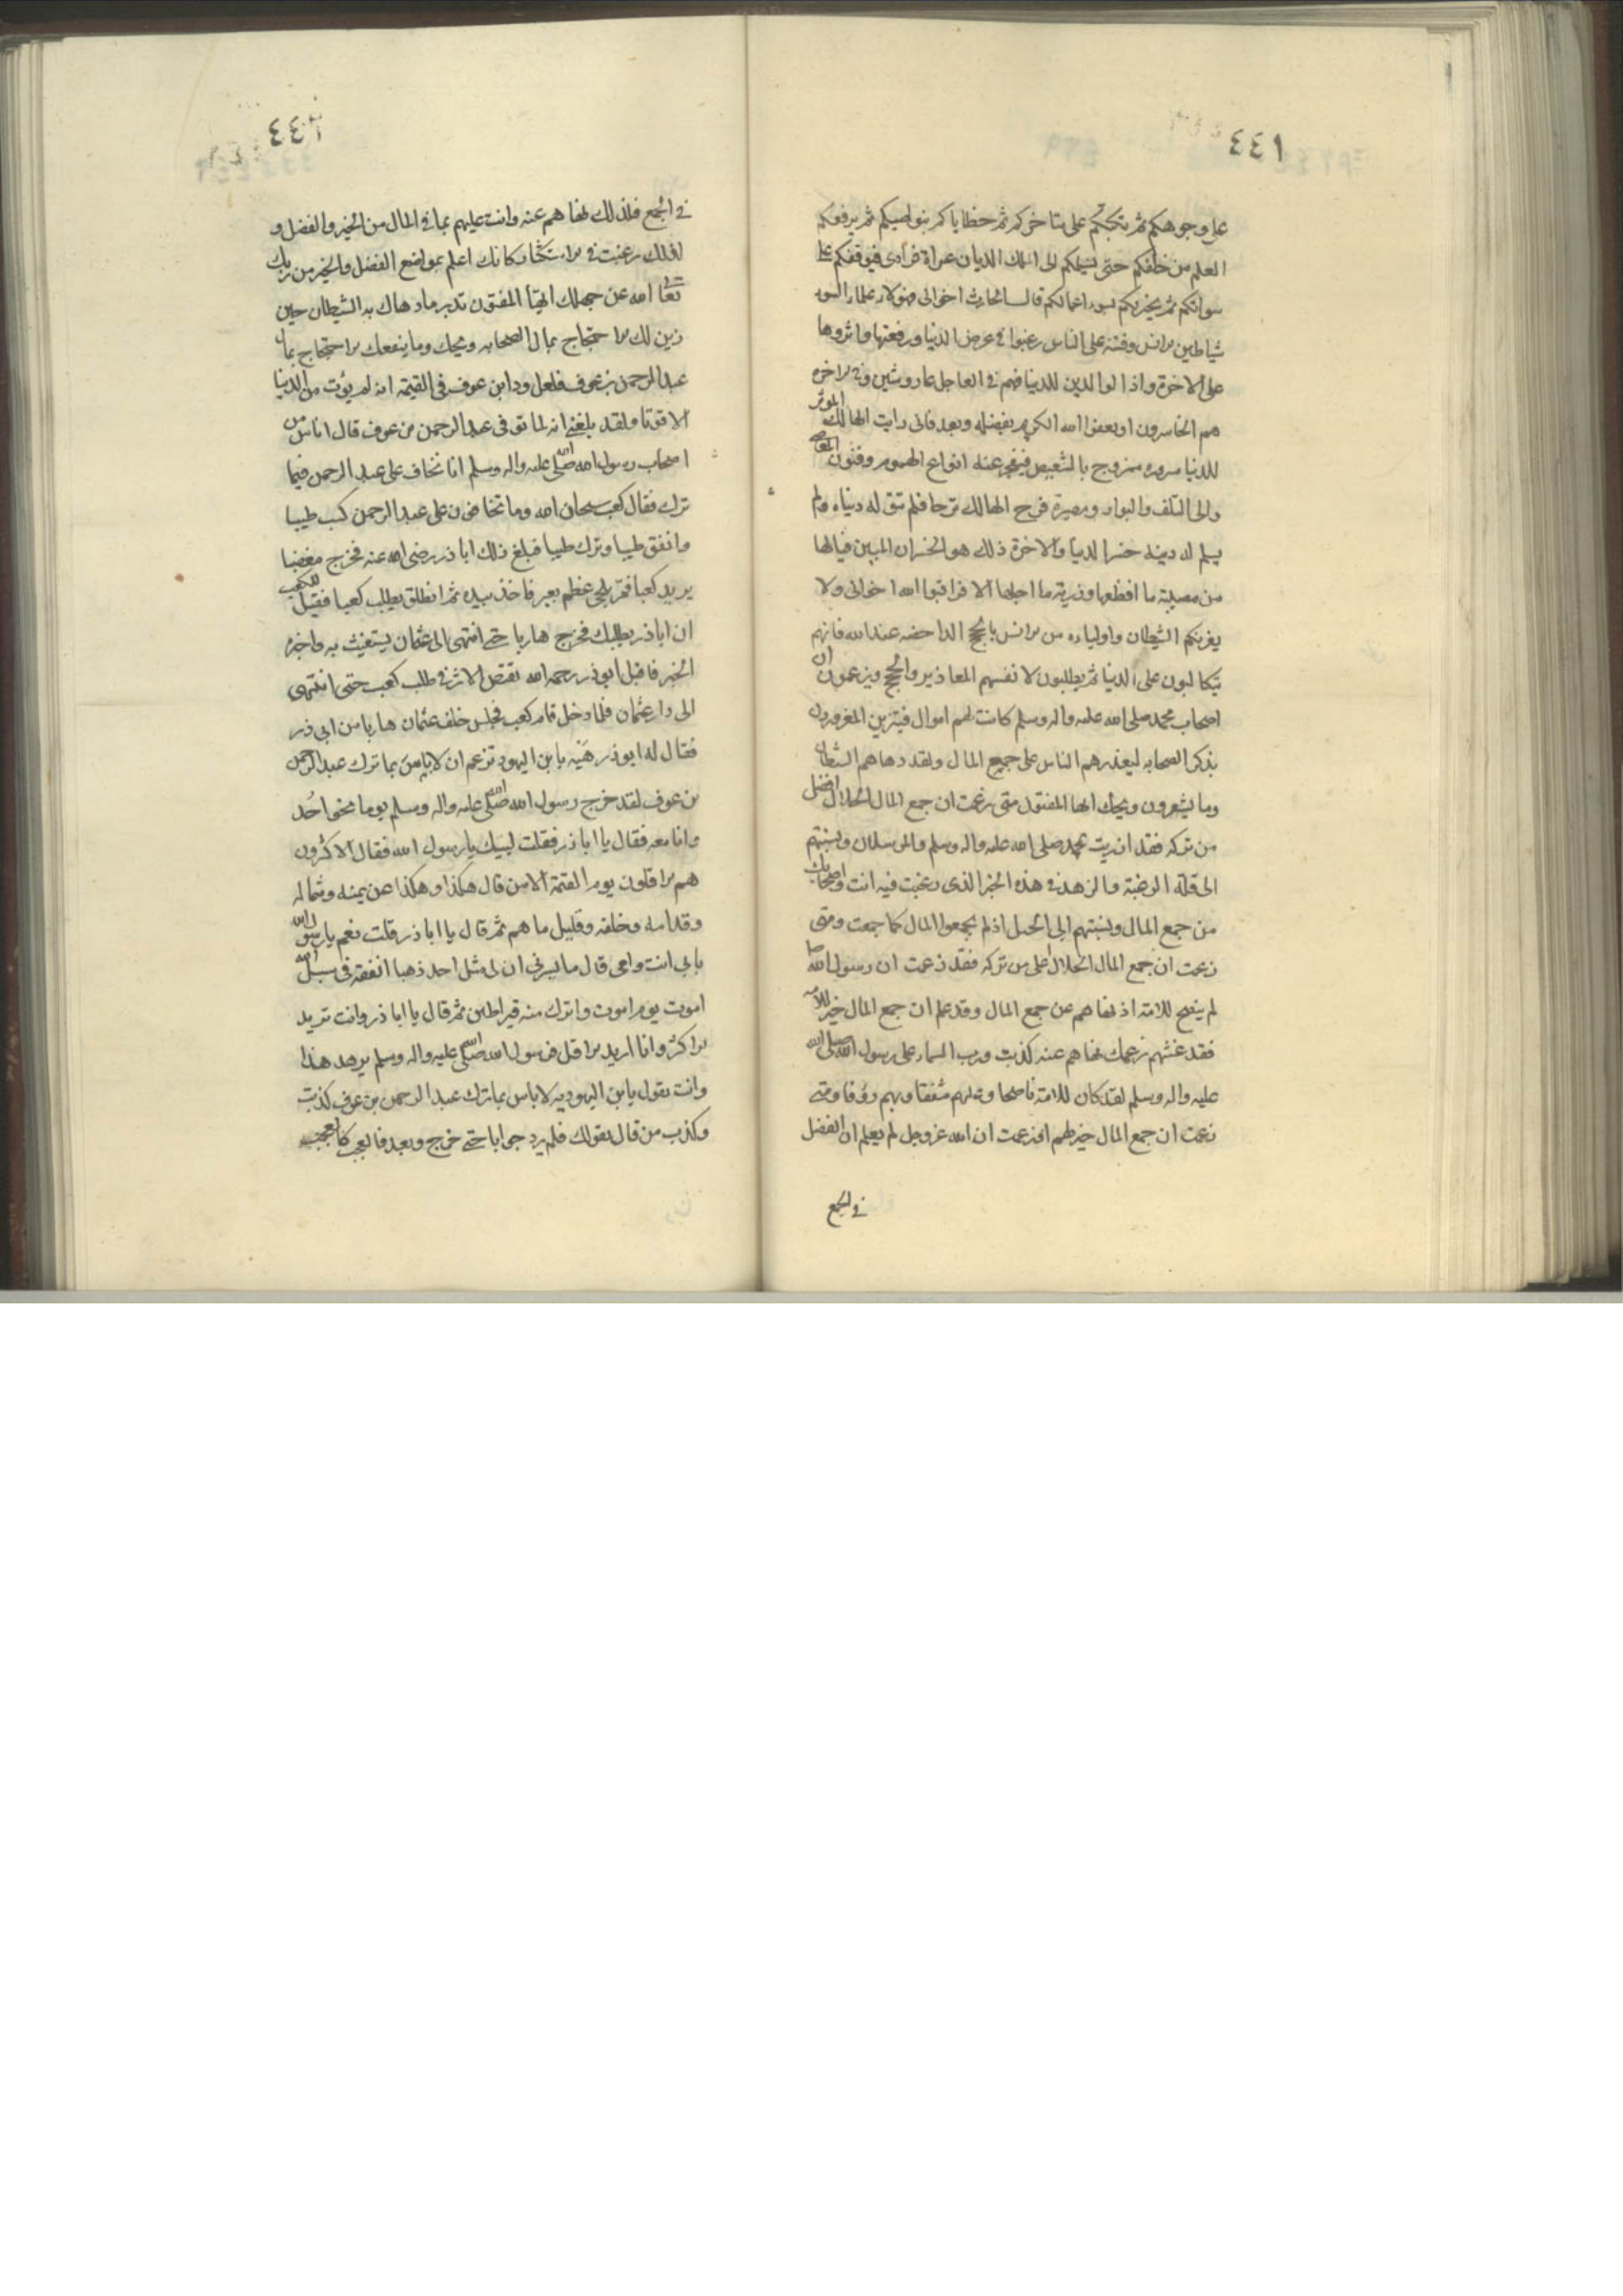 ٤٤١
على وجوهكم ثم يكبكم على مناخركم ثم خطاياكم بنواصيكم ثم يرفعكم
العلم من خلفكم حتى يسلمكم الى الملك الديان عراة فرادى فيوقفكم على
سواتكم ثم يخزيكم بسوء اعمالكم قال الحارث اخوانى فهولاء علماء السوء
شياطين الانس وفتنة على الناس رغبوا فى عرض الدنيا ورفعتها واثروها
على الاخرة واذالوا الدين للدنيا فهم فى العاجل عار وشين وفى الاخرة
هم الخاسرون او يعفوا الله الكريم بفضله وبعد فانى رايت الهالك الموثر
للدنيا سروره ممزوج بالتنغيص فيتفجر عنه انواع الهموم وفنون المعاصى
والى التلف والبوار ومصيره فرح الهالك ترحا فلم تبق له دنياه ولم
يسلم له دينه خسر الدنيا والاخرة ذلك هو الخسران المبين فيالها
من مصيبة ما افظعها ورزية ما اجلها الا فراقبوا الله اخوانى ولا
يغرنكم الشيطان واولياءه من الانس بالحجج الداحضه عند الله فانهم
يتكالبون على الدنيا ثم يطلبون لانفسهم المعاذير والحجج ويزعمون ان
اصحاب محمد صلى الله عليه واله وسلم كانت لهم اموال فيتزين المغرورون
بذكر الصحابه ليعذرهم الناس على جميع المال ولقد دهاهم الشيطان
وما يشعرون ويحك ايها المفتون متى زعمت ان جمع المال الحلال افضل
من تركه فقد ازريت بمحمد صلى الله عليه واله وسلم والمرسلان ونسبتهم
الى قلة الرغبة والزهد فى هذه الخير الذى رغبت فيه انت واصحابك
من جمع المال ونسبتهم الى الجهل اذ لم يجمعوا المال كما جمعت ومتى
زعمت ان جمع المال الحلال اعلى من تركه فقد زعمت ان رسول الله ص
لم ينصح للامته اذ نهاهم عن جمع المال وقد علم ان جمع المال خير للامه
فقد غشهم بزعمك نهاهم عنه كذبت ورب السماء على رسول الله صلى الله
عليه واله وسلم لقد كان للامته ناصحا وعليهم مشفقا وبهم رؤفا ومتى
زعمت ان جمع المال خير لهم افزعمت ان الله عز وجل لم يعلم ان الفضل
فى الجمع
٤٤٢
فى الجمع فلذلك نهاهم عنه وانت عليهم بما فى المال من الخير والفضل و
لذلك رغبت فى الاستكثار كانك اعلم بمواضع الفضل والخير من ربك
تعالى الله عن جهلك ايها المفتون تدبر ما دهاك به الشيطان حين
زين لك الاحتجاج بمال الصحابه ويحك وما ينفعك الاحتجاج بمال
عبد الرحمن بن عوف فلعل ود ابن عوف فى القيمة انه لم يؤت من الدنيا
الا قوتا ولقد بلغنى انه لما توفى عبد الرحمن بن عوف قال اناس من
اصحاب رسول الله صلى الله عليه واله وسلم انا نخاف على عبد الرحمن فيما
ترك فقال كعب سبحان الله وما تخافون على عبد الرحمن كسب طيبا
وانفق طيبا وترك طيبا فبلغ ذلك ابا ذر رضى الله عنه فخرج مغضبا
يريد كعبا فمر بلحى عظم بعير فاخذ بيده ثم انطلق يطلب كعبا فقيل لكعب
ان اباذر يطلبك فخرج هاربا حتى انتهى الى عثمان يستغيث به واخبره
الخبر فاقبل ابوذر رحمه الله تقتص الاثر فى طلب كعب حتى انتهى
الى دار عثمان فلما دخل قام كعب فجلس خلف عثمان هاربا من ابى ذر
فقال له ابو ذر هيه يا بن اليهود تزعم ان لا باس بما ترك عبد الرحمن
بن عوف لقد خرج رسول الله صلى الله عليه واله وسلم يوما نحو احد
وانا معه فقال يا ابا ذر فقلت لبيك يا رسول الله فقال الاكثرون
هم الاقلون يوم القيمة الا من قال هكذا وهكذا عن يمينه وشماله
وقدامه وخلفه وقليل ما هم ثم قال يا ابا ذر قلت نعم يا رسول الله
بابى انت وامى قال ما يسرنى ان لى مثل احد ذهبا انفقه فى سبيل الله
اموت يوم اموت واترك منه قيراطين ثم قال يا ابا ذر وانت تريد
الاكثر وانا اريد الاقل فرسول الله صلى الله عليه واله وسلم يريد هذا
وانت تقول يا بن اليهوديه لا باس بما ترك عبد الرحمن بن عوف كذبت
وكذب من قال بقولك فلم يرد جوابا حتى خرج وبعد فالعجب كل العجب